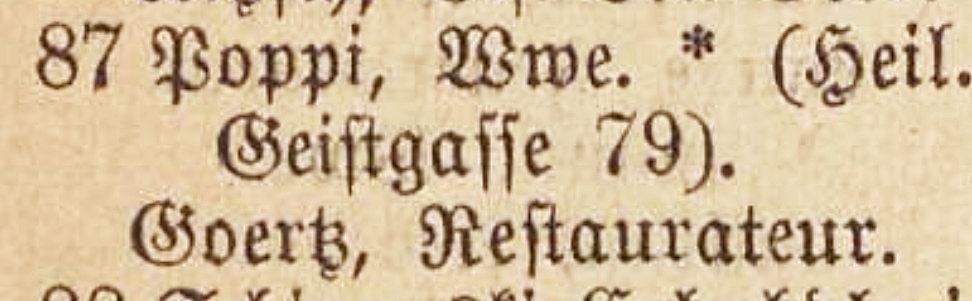 87 Poppi, Wwe. * (Heil.
Geiſtgaſſe 79).
Goertz, Reſtaurateur.